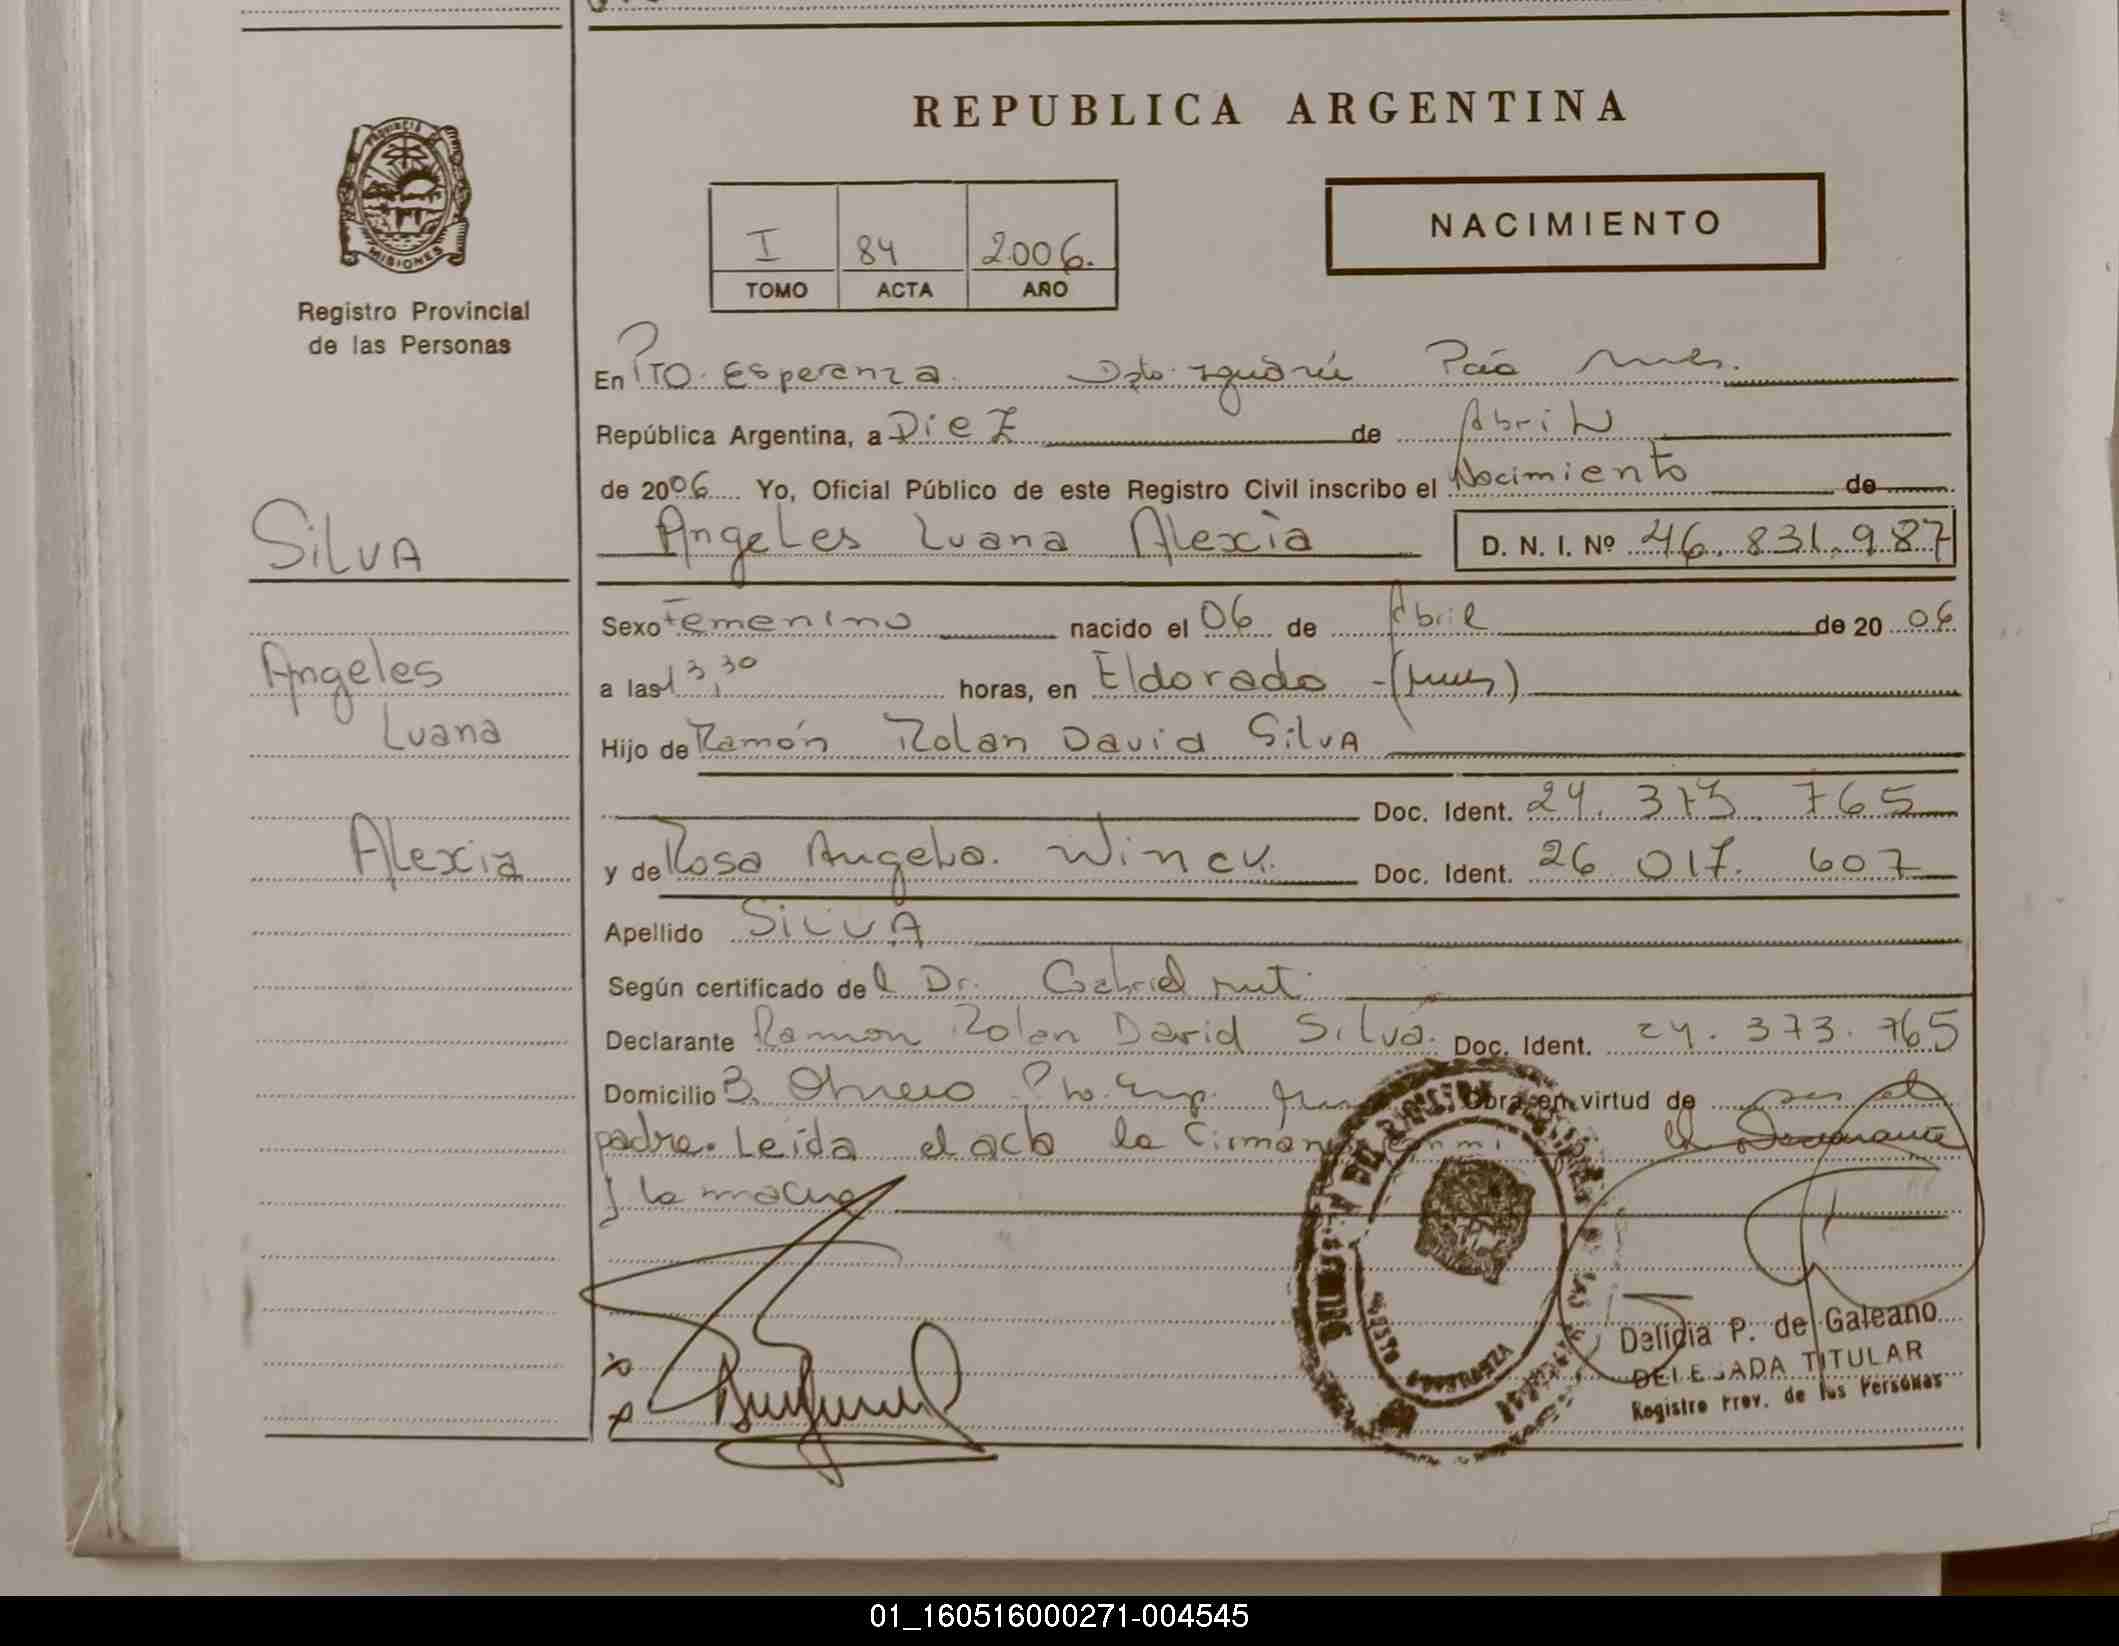 REPUBLICA ARGENTINA
PROVINCIA DE
MISIONES
Registro Provincial
de las Personas
I 84 2006.
TOMO ACTA AÑO
NACIMIENTO
En Pto. Esperanza. Dpto. Iguazú Pcia Mnes.
República Argentina, a Diez de Abril
de 2006 Yo, Oficial Público de este Registro Civil inscribo el Nacimiento de
SILVA
Angeles Luana Alexia D. N. I. Nº 46.831.987
Sexo Femenino nacido el 06 de Abril de 20 06
Angeles
a las 13,30 horas, en Eldorado - (Mnes)
Luana
Hijo de Ramón Rolan David Silva
Doc. Ident. 24. 373. 765
Alexia
y de Rosa Angela. Winck. Doc. Ident. 26 017. 607
Apellido SILVA
Según certificado de l Dr. Gabriel
Declarante Ramon Rolan David Silva. Doc. Ident. 24. 373. 765
Domicilio B. Obrero Pto. Esp. Obra en virtud de ser el
padre. Leída el acta la Firman el Declarante
y la madre
Delicia P. de Galeano
DELEGADA TITULAR
Registro Prov. de las Personas
01_160516000271-004545